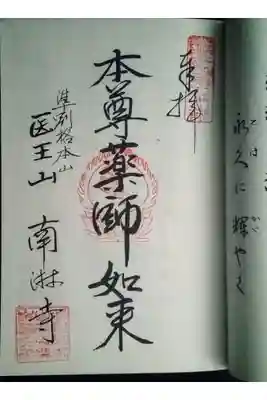 永久に輝やく
奉拝
本尊薬師如来
準別格本山
医王山 南淋寺